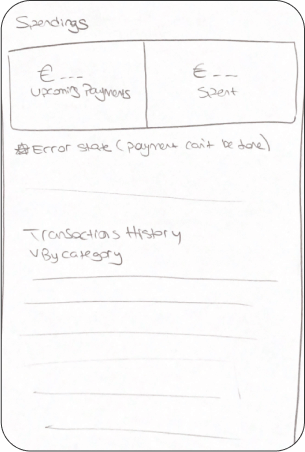 Spendings
€ ---
Upcoming Payments
€ --
Spent
Error state (payment can't be done)
Transactions History
V By category